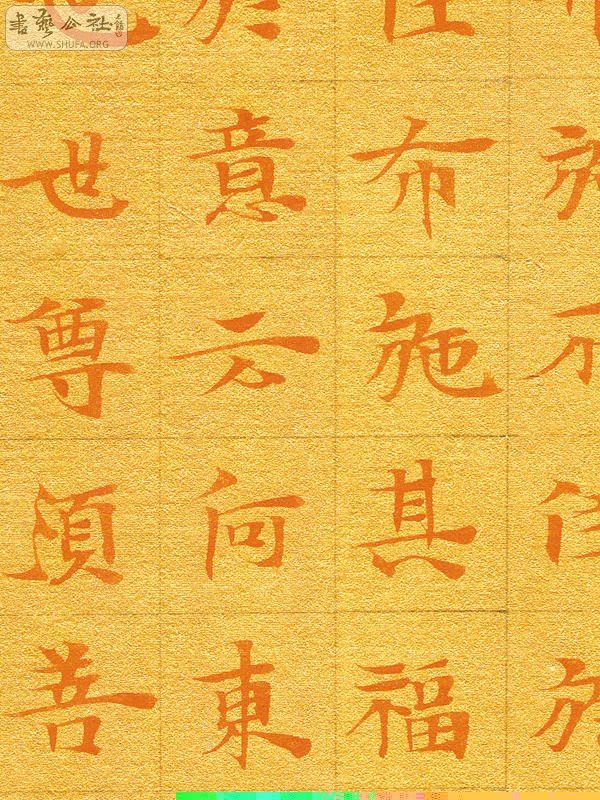 書藝公社
WWW.SHUFA.ORG
布施其福
意云何東
世尊須菩